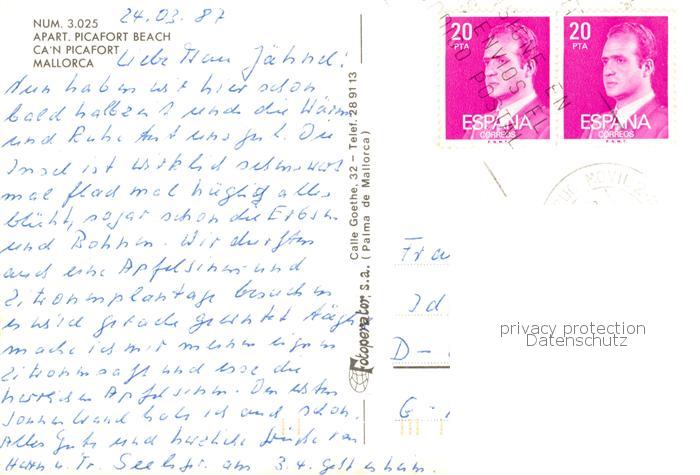 24.03.87
NUM. 3.025
APART. PICAFORT BEACH
CA'N PICAFORT
MALLORCA
Liebe Frau Jähnel!
Nun haben wir hier schon
bald halbzeit und die Wärme
und Ruhe tut uns gut. Die
Insel ist wirklich sehenswert
mal flach mal hüglig alles
blüht, sogar schon die Erbsen
und Bohnen. Wir durften
auch eine Apfelsinen und
Zitronenplantage besuchen
es wird gerade geerntet täglich
mache ich mir meinen eigenen
Zitronensaft und esse die
herrlichen Apfelsinen. Den ersten
Sonnenbrand habe ich auch schon.
Alles Gute und herzliche Grüße von
Herrn u. Fr. am 3.4. geht es heim.
Fotoperator, s.a.
Calle Goethe, 32 – Telef. 28 91 13
(Palma de Mallorca)
20
PTA
ESPAÑA
CORREOS
F.N.M.T.
20
PTA
ESPAÑA
CORREOS
F.N.M.T.
Fra
Id
D-
G-
privacy protection
Datenschutz